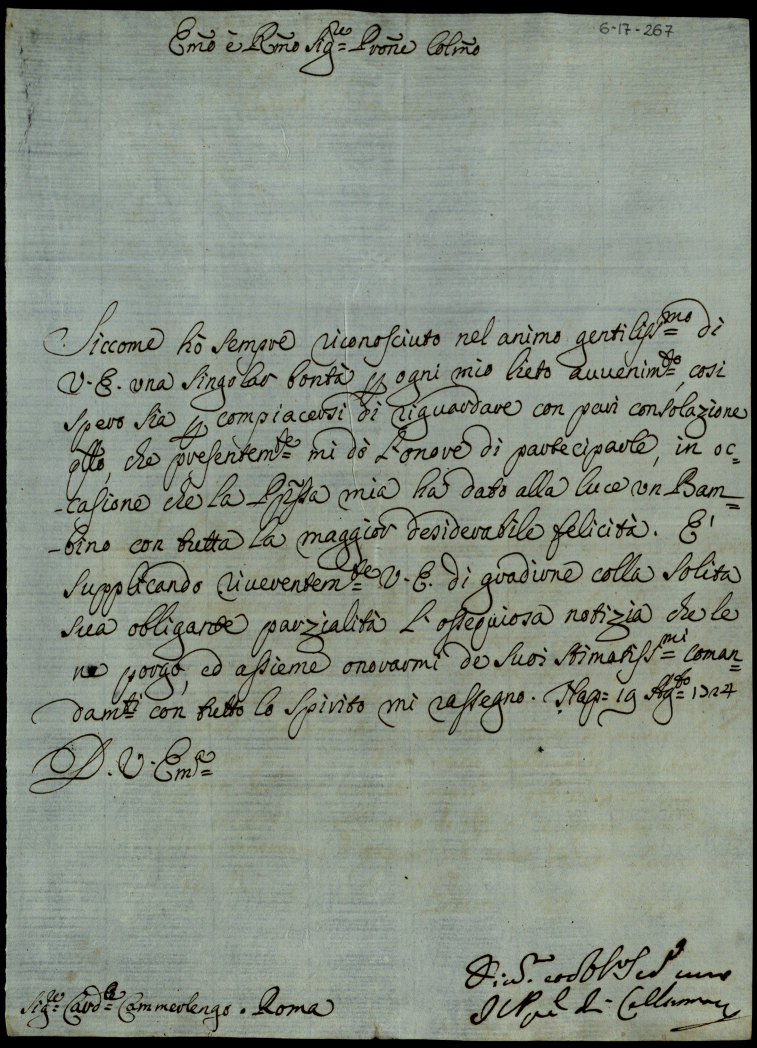 6-17-267
Emo è Rmo Sigre Prone Colmo
Siccome hò sempre riconosciuto nel animo gentilissmo di
V. E. una singolar bontà p ogni mio lieto auuenimto, cosi
spero sia p compiacersi di riguardare con pari consolazione
qllo, che presentemte mi dò l'onore di partecipare, in oc=
casione che la Ppssa mia ha dato alla luce un Bam=
bino con tutta la maggior desiderabile felicità. E'
supplicando riverentemte V. E. di gradirne colla solita
sua obligante parzialità l'ossequiosa notizia che le
ne porgo, ed assieme onorarmi de suoi stimatissmi coman=
damti con tutto lo spirito mi rassegno. Nap= 19 Agto 1724
D. V. Emza
Sigre Card= Cammerlengo. Roma